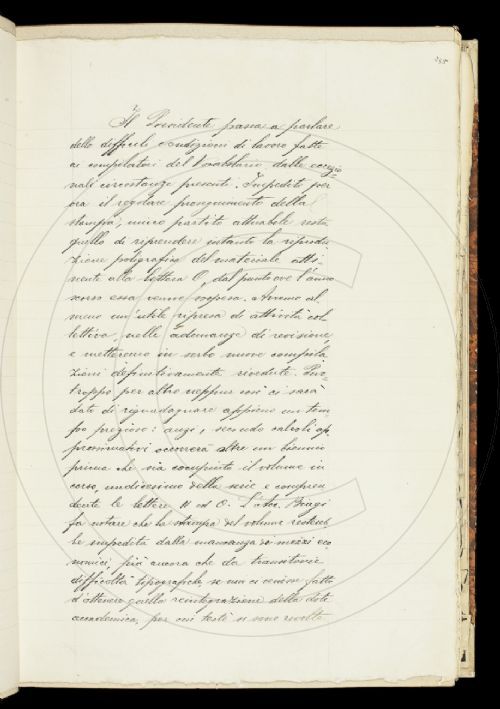 Il Presidente passa a parlare
delle difficili condizioni di lavoro fatte
ai compilatori del Vocabolario dalle eccezio=
nali circostanze presenti. Impedito per
ora il regolare proseguimento della
stampa, unico partito attuabile resta
quello di riprendere intanto la riprodu
zione poligrafica del materiale atti=
nente alla lettera O, dal punto ove l'anno
scorso essa venne sospesa. Avremo al
meno un'utile ripresa di attività col
lettiva, nelle adunanze di revisione,
e metteremo in serbo nuove compila
zioni definitivamente rivedute. Pur=
troppo per altro neppur così ci sarà
dato di riguadagnare appieno un tem
po prezioso: anzi, secondo calcoli ap
prossimativi occorrerà altre un biennio
prima che sia compiuto il volume in
corso, undicesimo della serie e compren
dente le lettere N ed O. L'Acc. Biagi
fa notare che la stampa del volume resterebbe
impedita dalla mancanza di mezzi eco
nomici, più ancora che da transitorie
difficoltà tipografiche, se non ci venisse fatto
d'ottenere quella reintegrazione della dote
accademica, per cui testè si sono rivolte